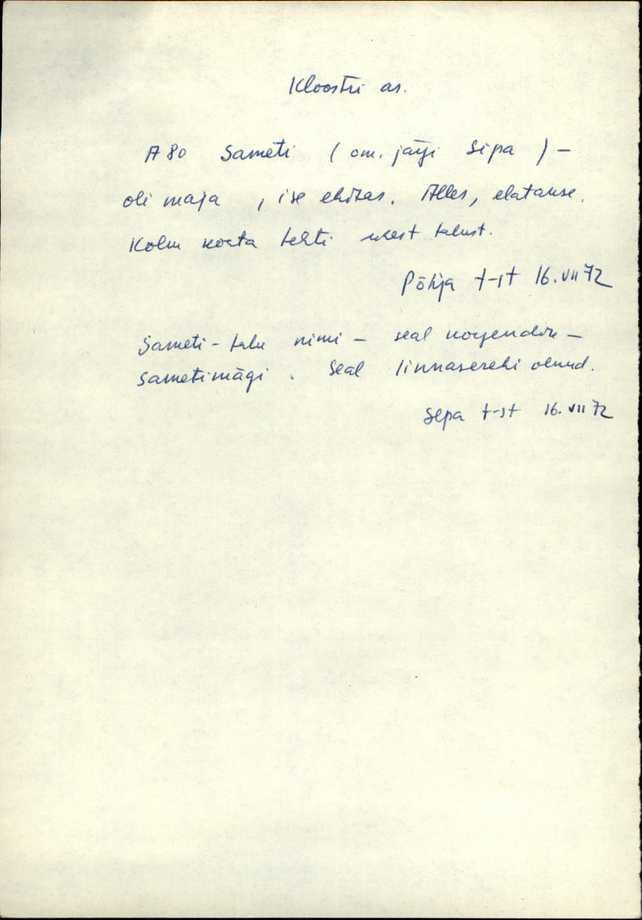 Kloostri as.
A 80 Sameti ( om. järgi Sepa ) –
oli maja , ise ehitas. Alles, elatakse.
Kolm korda tehti uuest talust.
Põhja t-st 16. VII 72
Sameti - talu nimi – seal
Sametimägi . Seal linnaserehi olnud.
Sepa t-st 16. VII 72